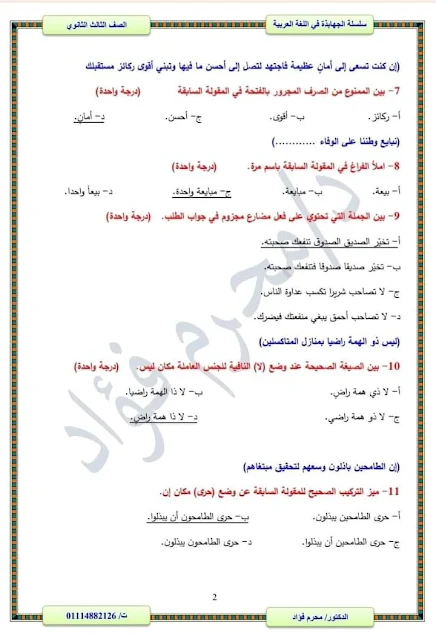 سلسلة الجهابذة في اللغة العربية
الصف الثالث الثانوي
(إن كنت تسعى إلى أمانٍ عظيمة فاجتهد لتصل إلى أحسن ما فيها وتبني أقوى ركائز مستقبلك
7- بين الممنوع من الصرف المجرور بالفتحة في المقولة السابقة (درجة واحدة)
أ- ركائز. ب- أقوى. ج- أحسن. د- أمانٍ.
(نبايع وطننا على الوفاء ............)
8- املأ الفراغ في المقولة السابقة باسم مرة. (درجة واحدة)
أ- بيعة. ب- مبايعة. ج- مبايعة واحدة. د- بيعاً واحدا.
9- بين الجملة التي تحتوي على فعل مضارع مجزوم في جواب الطلب. (درجة واحدة)
أ- تخيّر الصديق الصدوق تنفعك صحبته.
ب- تخيّر صديقا صدوقا فتنفعك صحبته.
ج- لا تصاحب شريرا تكسب عداوة الناس.
د- لا تصاحب أحمق يبغي منفعتك فيضرك.
(ليس ذو الهمة راضيا بمنازل المتكاسلين)
10- بين الصيغة الصحيحة عند وضع (لا) النافية للجنس العاملة مكان ليس. (درجة واحدة)
أ- لا ذي همة راضٍ. ب- لا ذا الهمة راضيا.
ج- لا ذو همة راضي. د- لا ذا همة راضٍ.
(إن الطامحين باذلون وسعهم لتحقيق مبتغاهم)
11- ميز التركيب الصحيح للمقولة السابقة عن وضع (حرى) مكان إن.
أ- حرى الطامحين يبذلون. ب- حرى الطامحون أن يبذلوا.
ج- حرى الطامحين أن يبذلوا. د- حرى الطامحون يبذلون.
2
الدكتور/ محرم فؤاد
ت/ 01114882126
د/محرم فؤاد